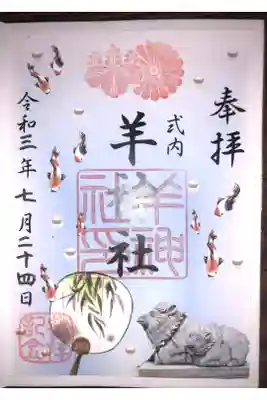 奉拝
式内
羊神社
羊神社印
令和三年七月二十四日